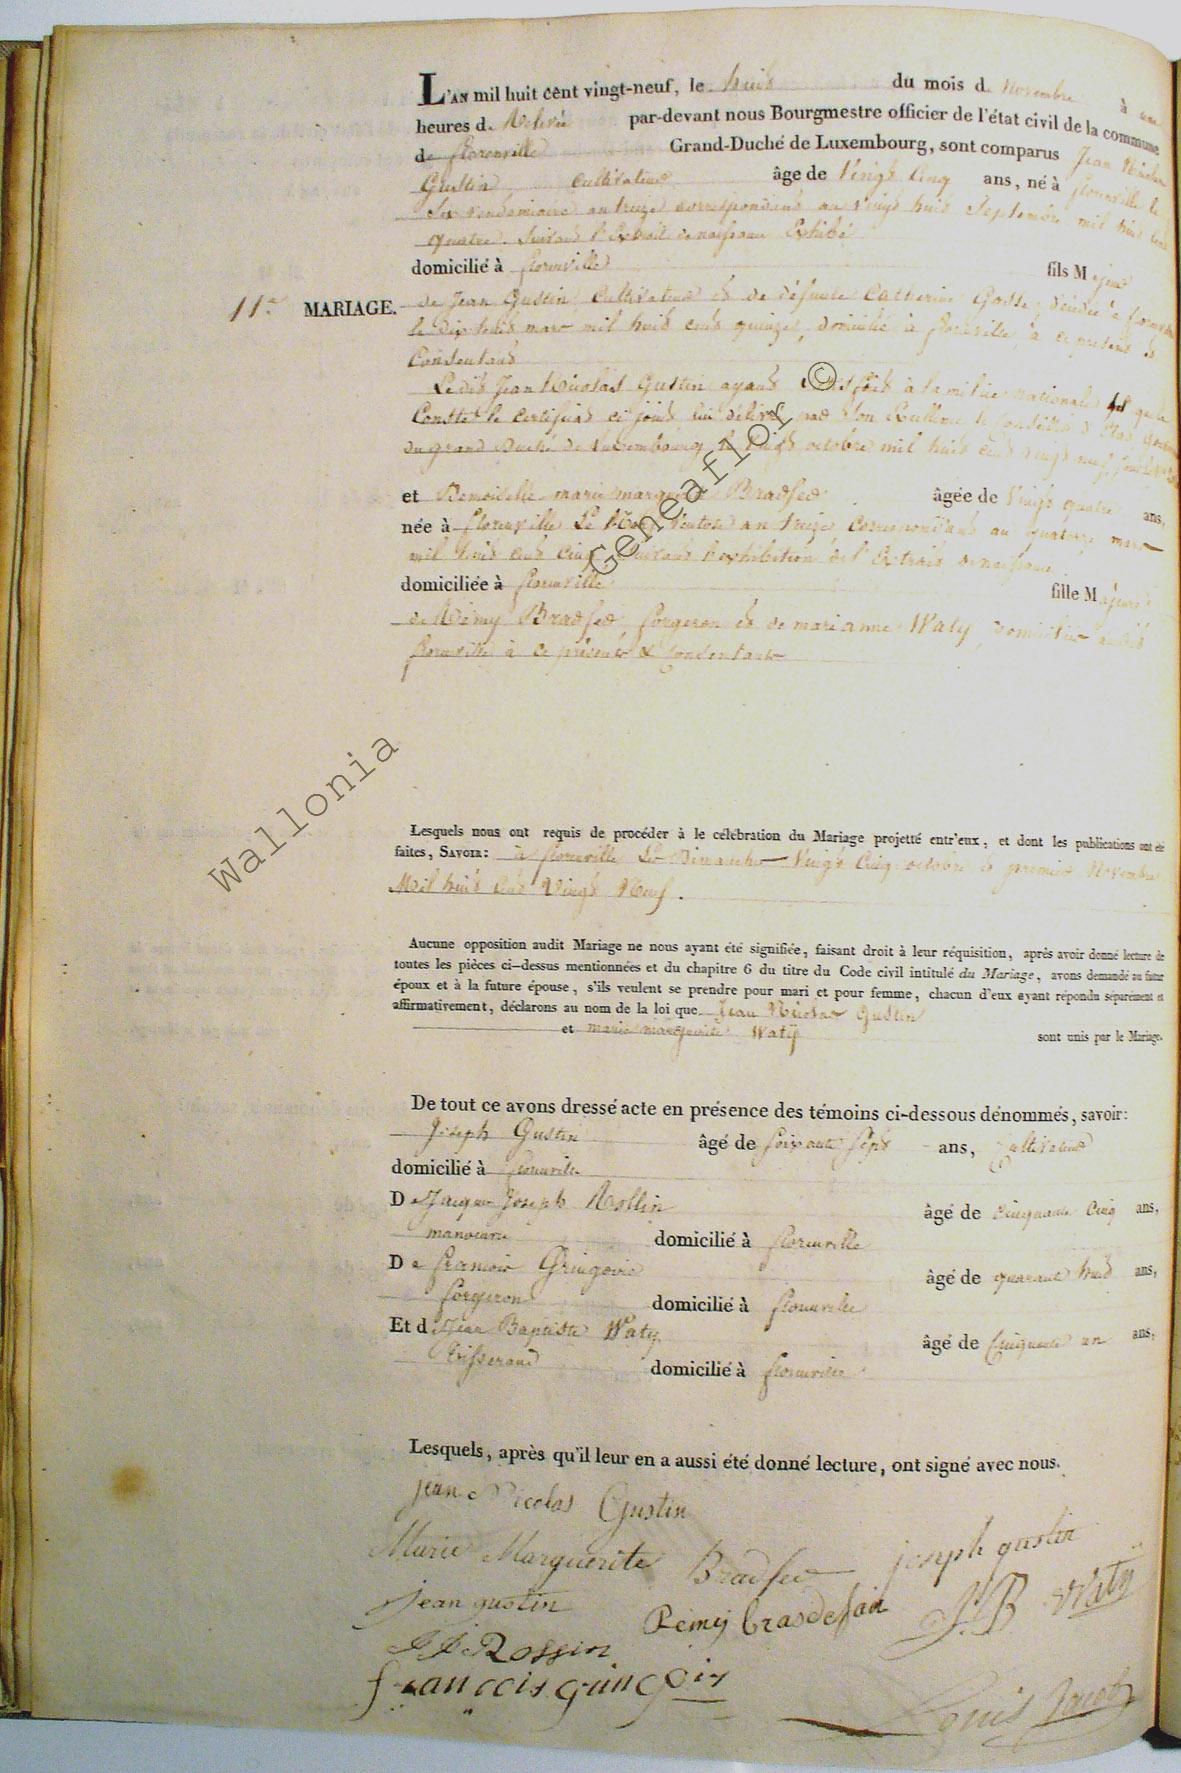 L'AN mil huit cent vingt-neuf, le huit du mois de Novembre à une
heures de Relevée par-devant nous Bourgmestre officier de l'état civil de la commune
de florenville Grand-Duché de Luxembourg, sont comparus Jean Nicolas
Gustin cultivateur âge de Vingt Cinq ans, né à florenville le
Six vendemiaire an treize correspondant au vingt huit Septembre mil huit cent
quatre. Suivant l'Extrait de naissance Exhibé
domicilié à florenville fils Majeur
11e MARIAGE. de Jean Gustin Cultivateur et de défunte Catherine Gosse, décédée à florenville
le dix huit mars mil huit cent quinze, domicilié à florenville, à ce présent et
Consentant
Ledit Jean Nicolas Gustin ayant satisfait à la milice nationale tel que le
Conste le certificat ci joint lui délivré par Son Excellence le Conseiller d'Etat
du grand Duché de Luxembourg le vingt octobre mil huit cent vingt neuf
et Demoiselle marie marguerite Bradfer âgée de Vingt quatre ans,
née à florenville Le treize Ventose an treize Correspondant au quatre mars
mil huit cent cinq, Suivant l'exhibition de l'Extrait de naissance
domiciliée à florenville fille Majeure
de Rémy Bradfer forgeron et de marianne Waty, domiciliés audit
florenville à ce présents & Consentants
Lesquels nous ont requis de procéder à le célébration du Mariage projetté entr'eux, et dont les publications ont été
faites, SAVOIR: à florenville Les Dimanches Vingt Cinq octobre et premier Novembre
Mil huit cent Vingt Neuf.
Aucune opposition audit Mariage ne nous ayant été signifiée, faisant droit à leur réquisition, après avoir donné lecture de
toutes les pièces ci-dessus mentionnées et du chapitre 6 du titre du Code civil intitulé du Mariage, avons demandé au futur
époux et à la future épouse, s'ils veulent se prendre pour mari et pour femme, chacun d'eux ayant répondu séparément et
affirmativement, déclarons au nom de la loi que Jean Nicolas Gustin
et marie marguerite Waty sont unis par le Mariage.
De tout ce avons dressé acte en présence des témoins ci-dessous dénommés, savoir:
Joseph Gustin âgé de soixante sept ans, Cultivateur
domicilié à florenville
De Jacques Joseph Rossin âgé de cinquante cinq ans,
manoeuvre domicilié à florenville
De francois Guingoir âgé de quarante huit ans,
forgeron domicilié à florenville
Et de Jean Baptiste Waty âgé de Cinquante un ans,
Tisserand domicilié à florenville
Lesquels, après qu'il leur en a aussi été donné lecture, ont signé avec nous.
jean Nicolas Gustin
Marie Marguerite Bradfer joseph gustin
jean gustin Remij brasdefair J B Waty
J J Rossin
françois guingoir
Louis Jacob
Wallonia Geneaflor ©